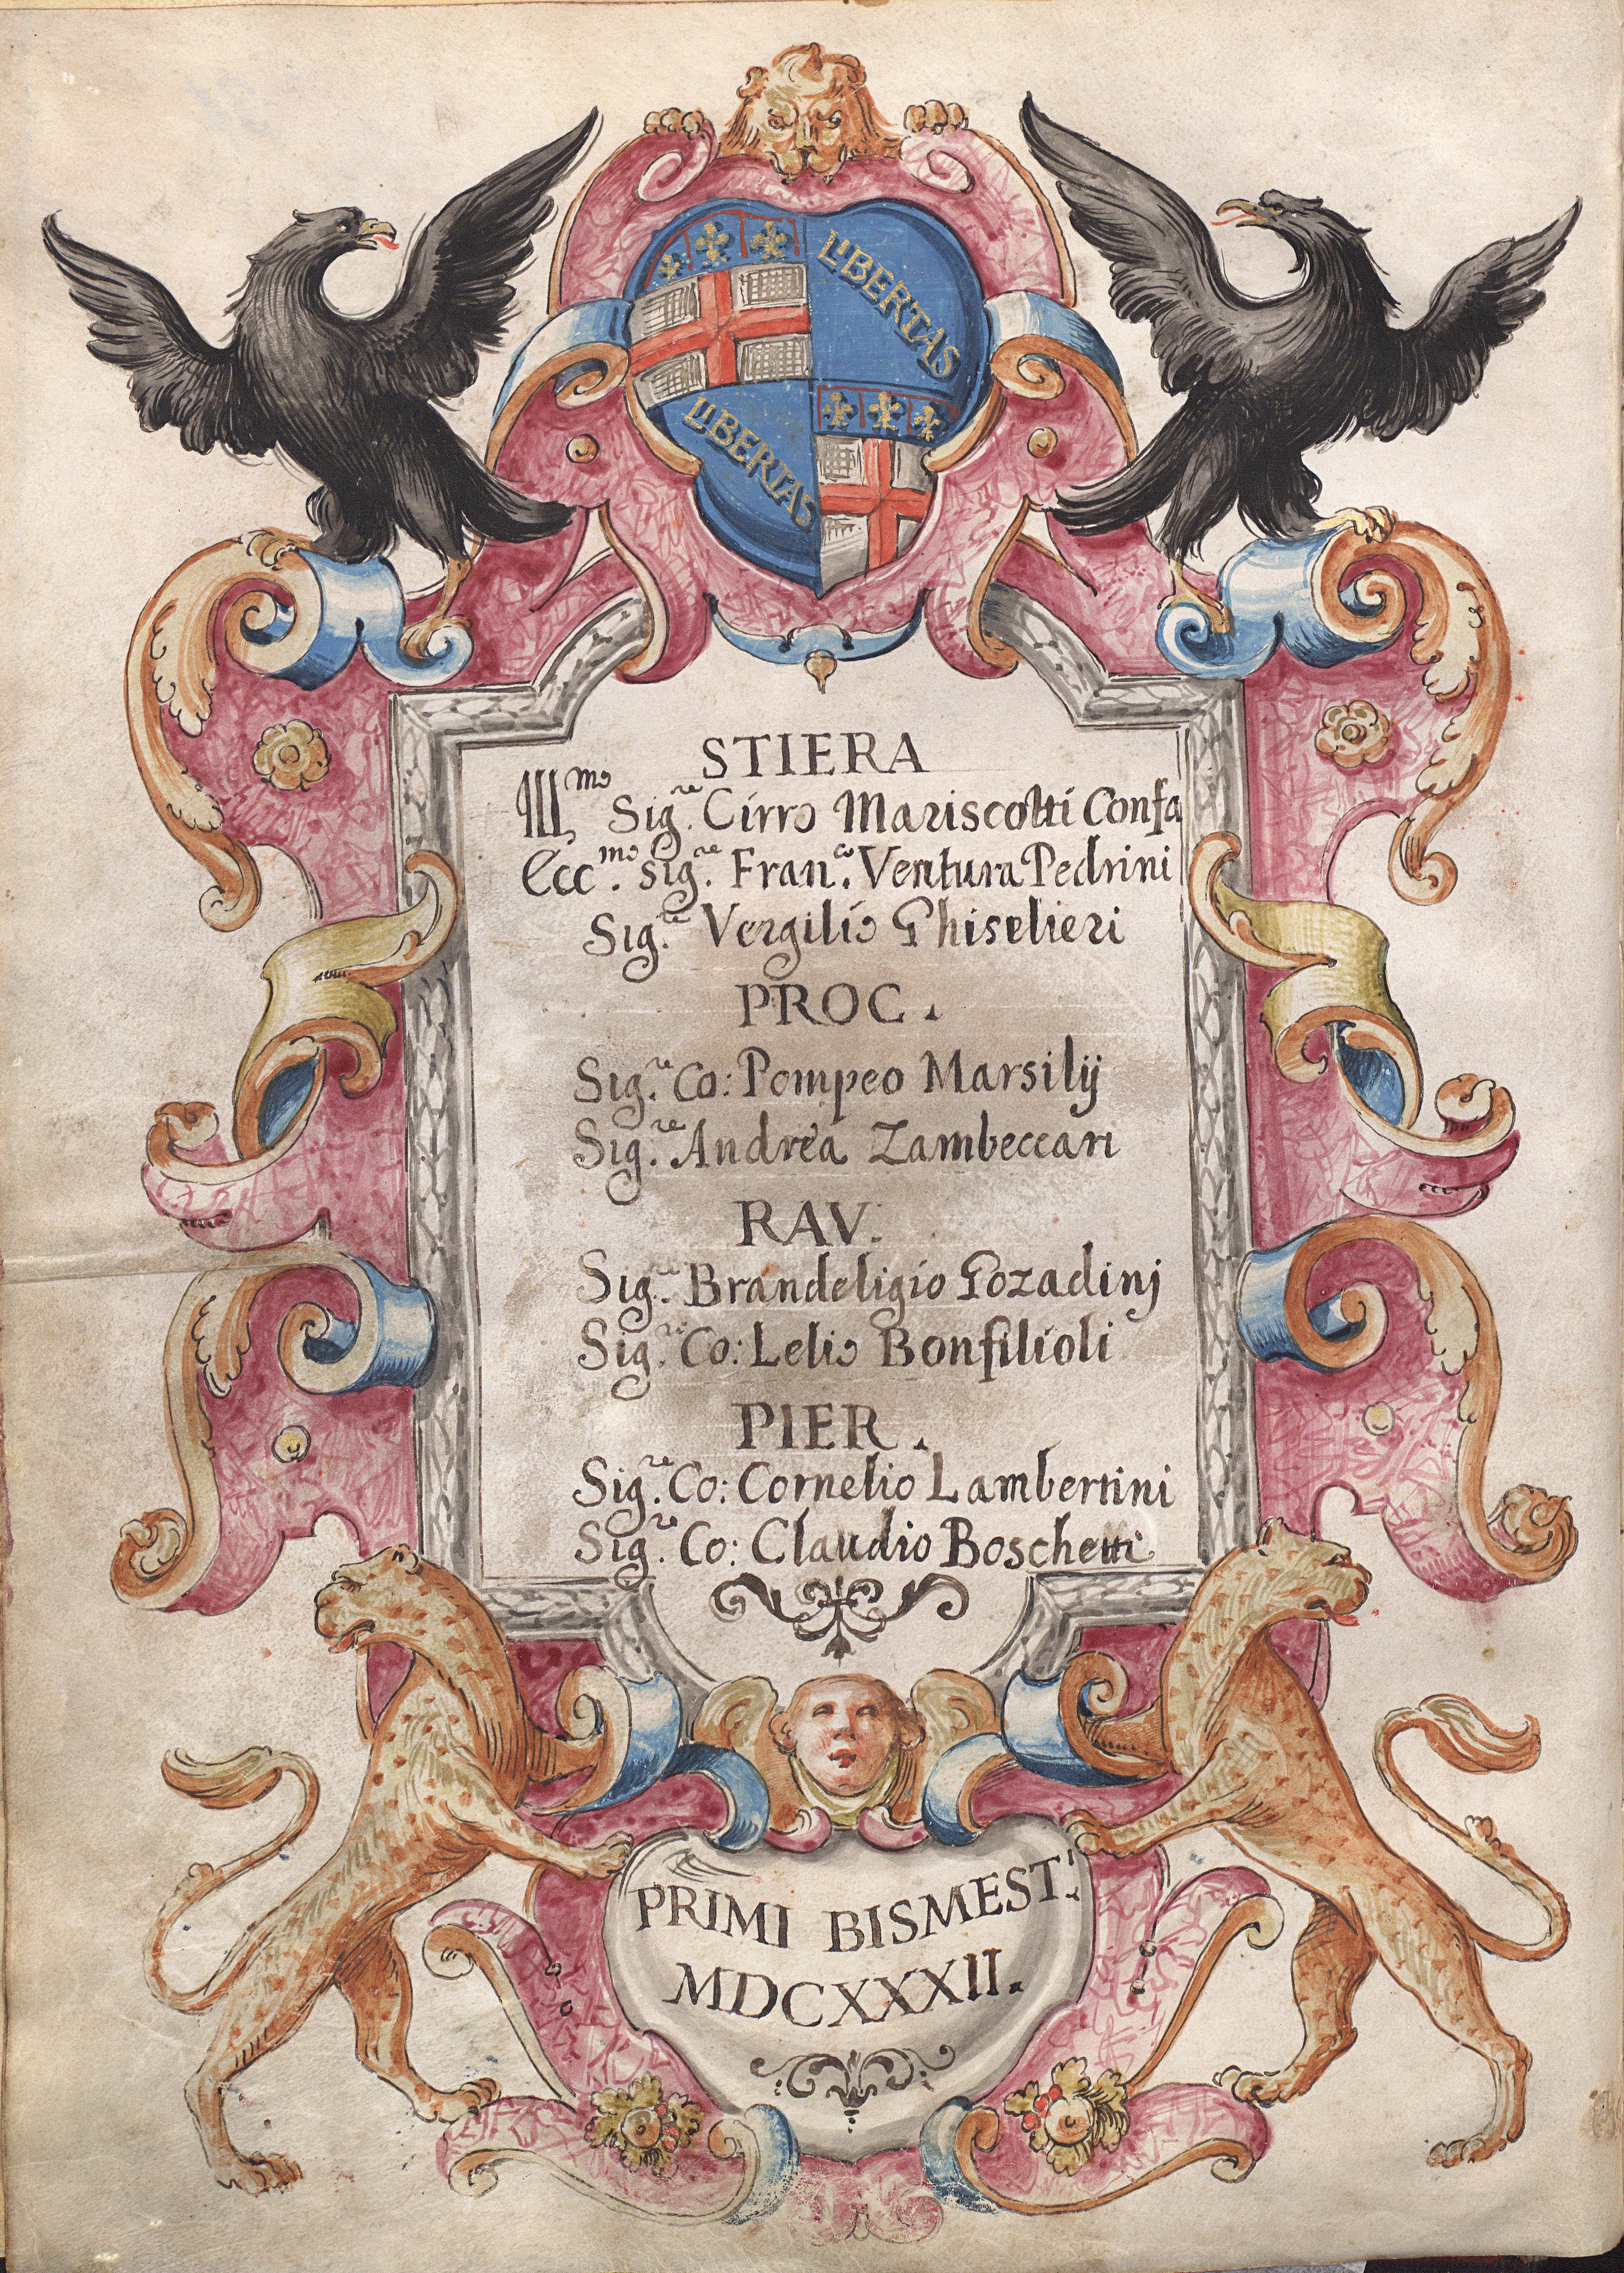 LIBERTAS
LIBERTAS
STIERA
Ill.mo Sig.re Cirro Mariscotti Confa
Ecc.mo Sig.re Fran.co Ventura Pedrini
Sig.re Vergilio Ghiselieri
PROC.
Sig.re Co: Pompeo Marsilij
Sig.re Andrea Zambeccari
RAV.
Sig.re Brandeligio Gozadinj
Sig.re Co: Lelio Bonfilioli
PIER.
Sig.re Co: Cornelio Lambertini
Sig.re Co: Claudio Boschetti
PRIMI BISMEST.
MDCXXXII.